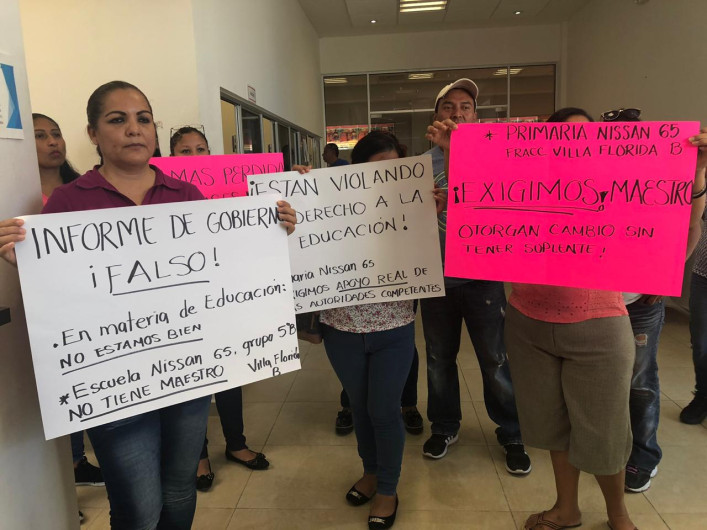 INFORME DE GOBIERNO
¡FALSO!
.En materia de Educación:
NO ESTAMOS BIEN
*Escuela Nissan 65, grupo 5ºB
NO TIENE MAESTRO
Villa Florida
B
MAS PERDID
ESTAN VIOLANDO
DERECHO A LA
EDUCACIÓN!
maria Nissan 65
EXIGIMOS APOYO REAL DE
AS AUTORIDADES COMPETENTES
* PRIMARIA NISSAN 65
FRACC VILLA FLORIDA B
¡EXIGIMOS MAESTRO
OTORGAN CAMBIO SIN
TENER SOPLENTE!